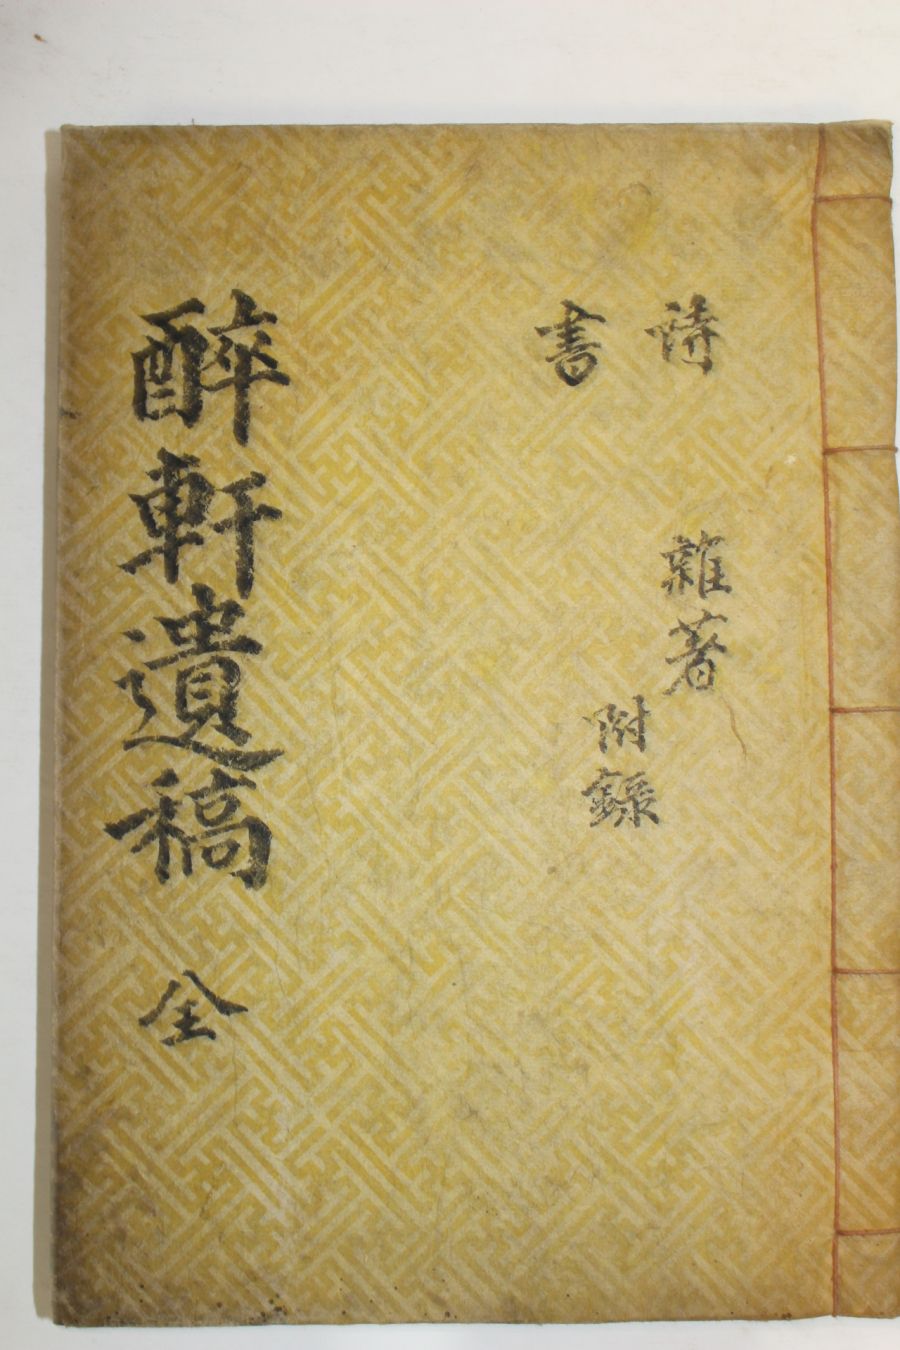 詩
雜著
書
附錄
醉軒遺稿 全